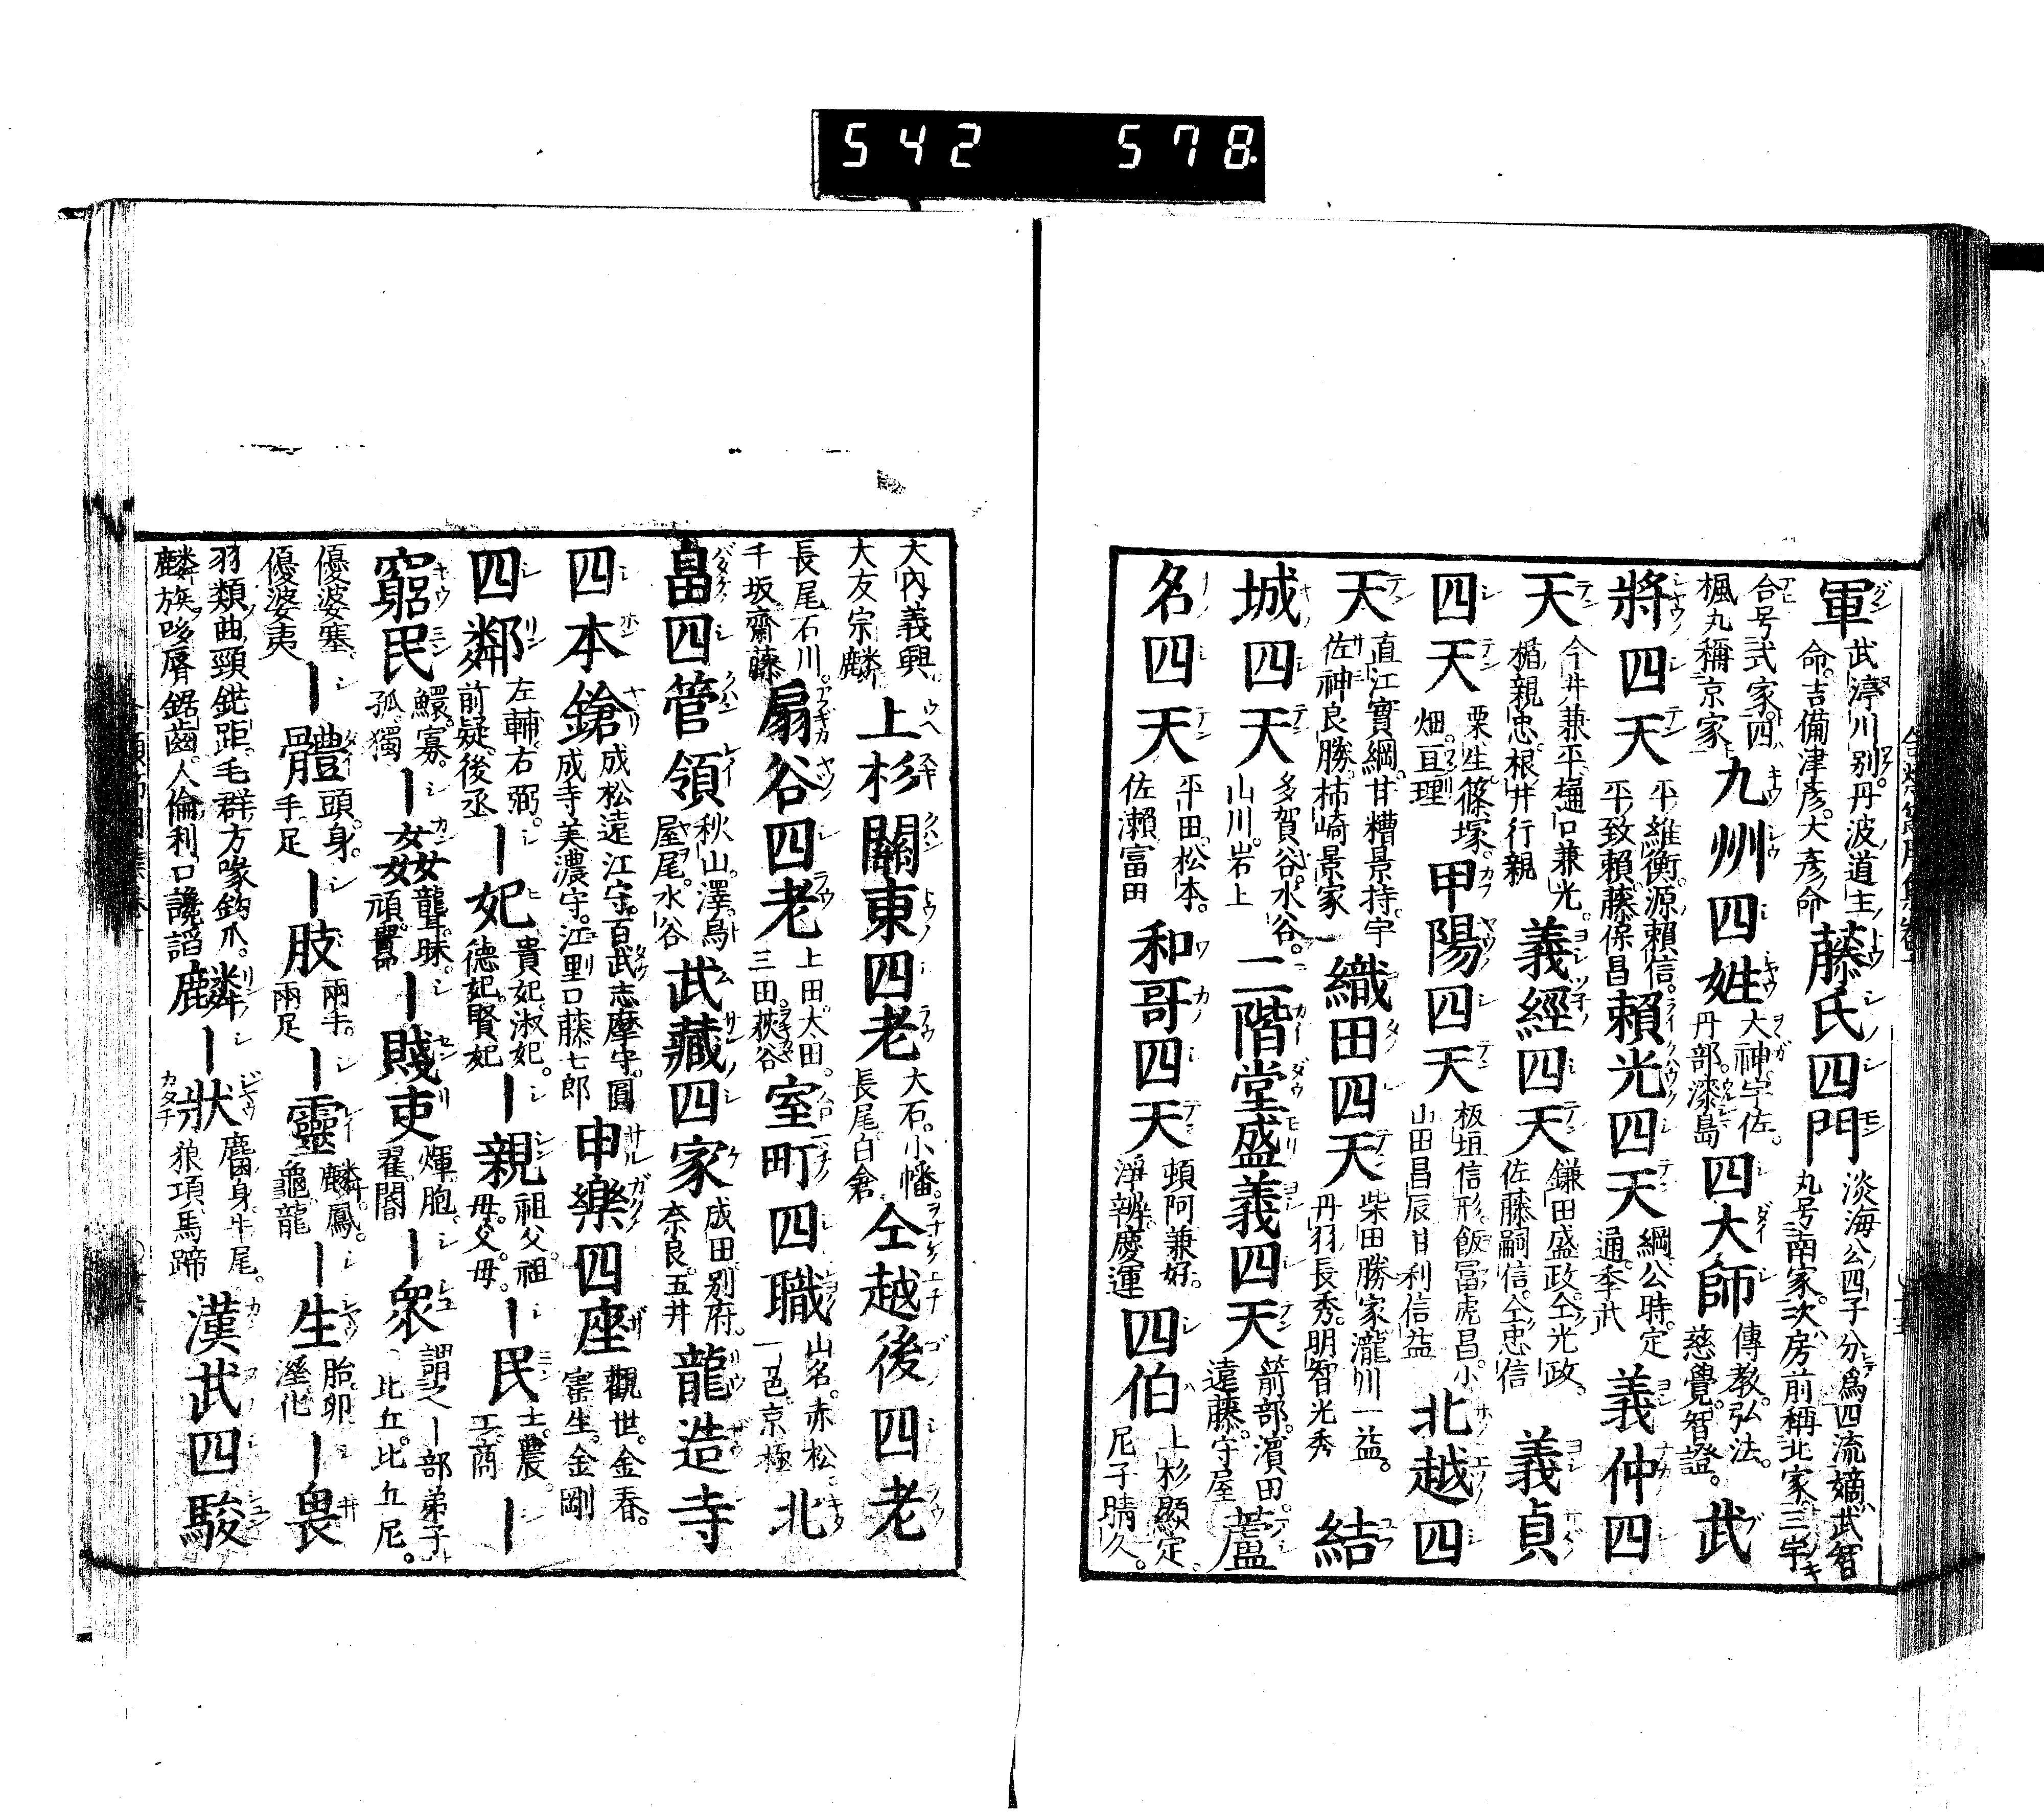 542 578
軍 武渟川別丹波道主命。吉備津彦。大彦命 藤氏四門 淡海公四子分爲四流嫡武智丸号南家次房前稱北家三宇
合号式家四楓丸稱京家 九州四姓 大神宇佐。丹部。漆島 四大師 傳教。弘法。慈覺。智證。 武
將四天 平維衡。源賴信。平致賴藤保昌 賴光四天 綱公時。定通。季武 義仲四
天 今井兼平樋口兼光。楯親忠。根井行親 義經四天 鎌田盛政。仝光政。佐藤嗣信。仝忠信 義貞
四天 栗生。篠塚。畑。亘理 甲陽四天 板垣信形。飯冨虎昌。小山田昌辰甘利信益 北越四
天 直江實綱。甘糟景持。宇佐神良勝。柿崎景家 織田四天 柴田勝家瀧川一益。丹羽長秀。明智光秀 結
城四天 多賀谷。水谷。山川。岩上 二階堂盛義四天 箭部。濱田。遠藤。守屋 蘆
名四天 平田。松本。佐瀨富田 和哥四天 頓阿兼好。淨辨慶運 四伯 上杉顯定。尼子晴久。
大内義興。大友宗麟 上杉關東四老 大石。小幡。長尾白倉 仝越後四老
長尾石川。千坂齋藤 扇谷四老 上田太田。三田荻谷 室町四職 山名。赤松。一色。京極 北
畠四管領 秋山。澤。鳥屋尾。水谷 武藏四家 成田別府。奈良。五井 龍造寺
四本鎗 成松遠江守。百武志摩守。圓成寺美濃守。江里口藤七郎 申樂四座 觀世。金春。寳生。金剛
四鄰 左輔右弼。前疑後丞 ー妃 貴妃淑妃。德妃賢妃 ー親 祖父。祖母。父。母。 ー民 士。農。工。商 ー
窮民 鰥。寡。孤獨 ー姦 聾。昧。頑嚚 ー賤吏 煇。胞。翟。閽 ー衆 謂之ー部弟子比丘。比丘尼。
優婆塞。優婆夷 ー體 頭。身。手。足 ー肢 兩手。兩足 ー靈 麟。鳳。龜龍 ー生 胎。卵。溼化 ー畏
羽類曲頸鉄距。毛群方喙鈎爪。麟族哆脣鋸齒。人倫利口讒謟 麟ー狀 麕身。牛尾。狼項馬蹄 漢武四駿